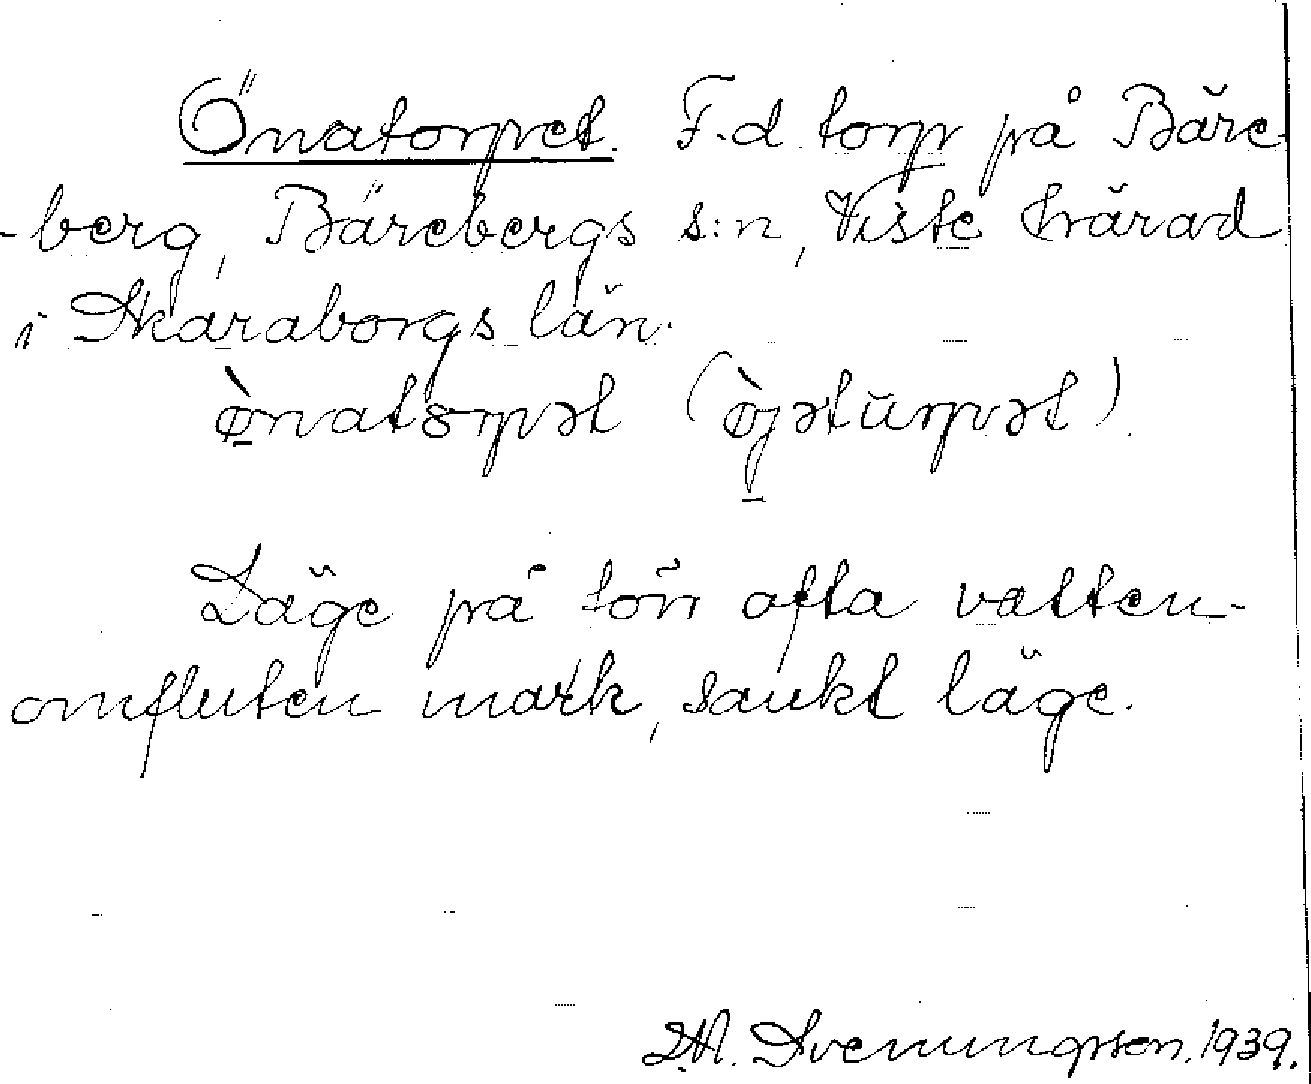 Önatorpet. F.d. torp på Bäre-
-berg, Bärebergs s:n, Viste härad
i Skaraborgs län.
ø̀natorpət (ø̀jəturpət).
Läge på torr ofta vatten-
omfluten mark, sankt läge.
Svenungsson. 1939.